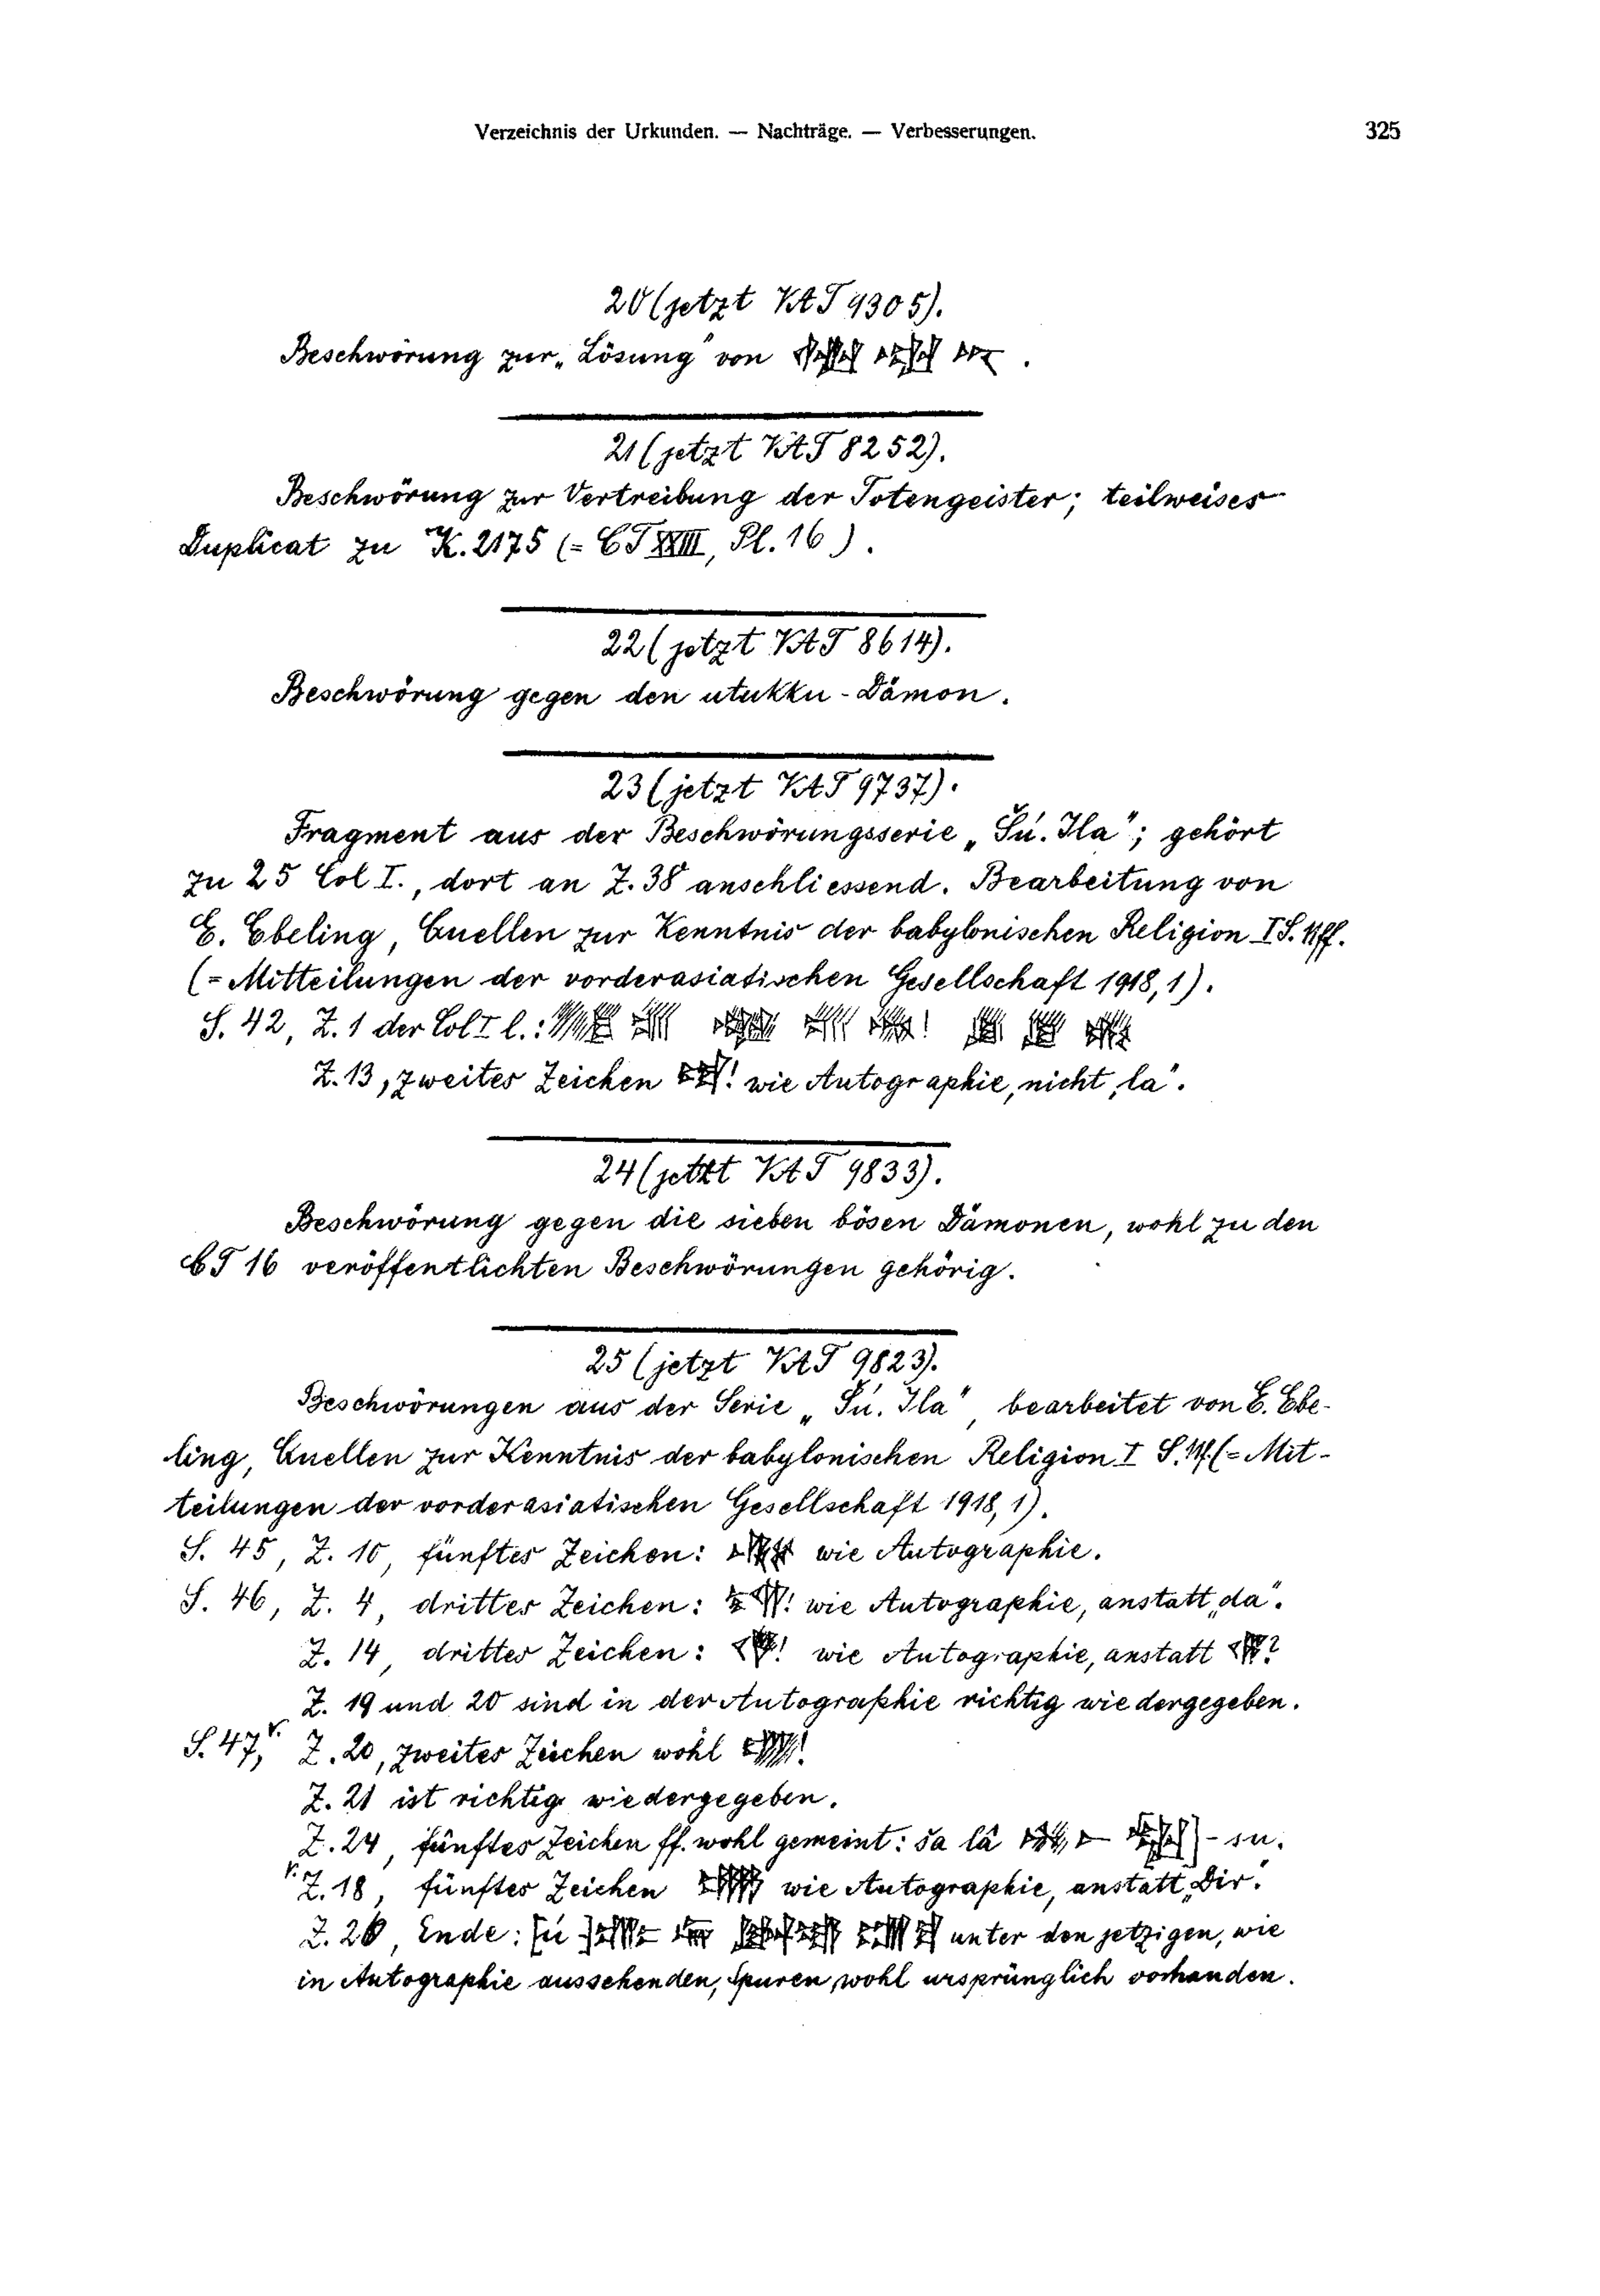 Verzeichnis der Urkunden. — Nachträge. — Verbesserungen. 325
20 (jetzt VAT 9305).
Beschwörung zur „Lösung" von .
21 (jetzt VAT 8252).
Beschwörung zur Vertreibung der Totengeister; teilweises
Duplicat zu K. 2175 (= CT XXIII, Pl. 16).
22 (jetzt VAT 8614).
Beschwörung gegen den utukku-Dämon.
23 (jetzt VAT 9737).
Fragment aus der Beschwörungsserie „Šú. Ila"; gehört
zu 25 Col I., dort an Z. 38 anschliessend. Bearbeitung von
E. Ebeling, Quellen zur Kenntnis der babylonischen Religion I S.
(= Mitteilungen der vorderasiatischen Gesellschaft 1918, 1).
S. 42, Z. 1 der Col I l.:
Z. 13, zweites Zeichen ! wie Autographie, nicht „la".
24 (jetzt VAT 9833).
Beschwörung gegen die sieben bösen Dämonen, wohl zu den
CT 16 veröffentlichten Beschwörungen gehörig.
25 (jetzt VAT 9823).
Beschwörungen aus der Serie „Šú. Ila", bearbeitet von E. Ebe-
ling, Quellen zur Kenntnis der babylonischen Religion I S. (= Mit-
teilungen der vorderasiatischen Gesellschaft 1918, 1).
S. 45, Z. 10, fünftes Zeichen: wie Autographie.
S. 46, Z. 4, drittes Zeichen: ! wie Autographie, anstatt „da".
Z. 14, drittes Zeichen: ! wie Autographie, anstatt ?
Z. 19 und 20 sind in der Autographie richtig wiedergegeben.
S. 47, r. Z. 20, zweites Zeichen wohl !
Z. 21 ist richtig wiedergegeben.
Z. 24, fünftes Zeichen ff. wohl gemeint: ša lâ ]-su.
r. Z. 18, fünftes Zeichen wie Autographie, anstatt „Dir".
Z. , Ende: [ú ] unter den jetzigen, wie
in Autographie aussehenden, Spuren wohl ursprünglich vorhanden.